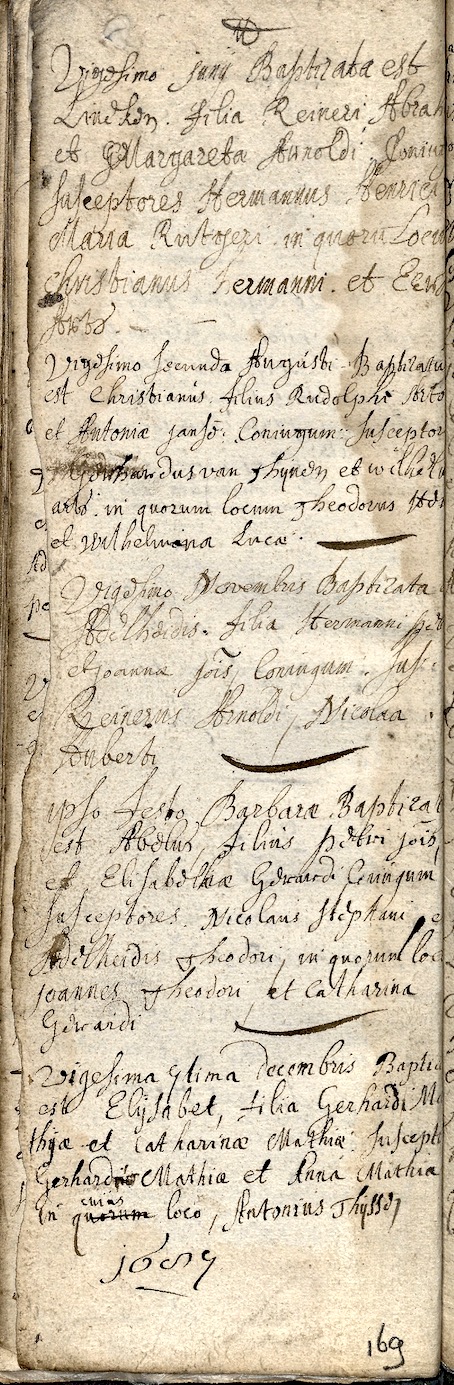 Vigesimo junij Baptizata est
Lineken. filia Reineri Abrah
et Margaretæ Arnoldi Coniug
susceptores Hermannus Henrici
Maria Rutgeri in quorū Locu
Christianus hermanni. et
Vigesimo secunda Augusti Baptizatu
est Christianus. filius Rudolphi Arto
et Antoniæ janse. Coniugum. susceptor
Gerhardus van Thynen et wilhel
arts. in quorum locum Theodorus
et Wilhelmina Lucæ.
Vigesimo Novembris Baptizata
Adelheidis. filia Hermanni pet
et joannæ jois, Coniugum. sus
Reinerus Arnoldi, Nicolaa
Huberti
ipso Festo Barbaræ Baptizat
est Abelus, filius petri jois,
et Elisabethæ Gerardi Coniugum
susceptores. Nicolaus Stephani e
Adelheidis Theodori, in quorum loc
joannes Theodori, et Catharina
Gerardi
Vigesima 7tima decembris Baptiz
est Elysabet, filia Gerhardi Ma
thyæ et Catharinæ Mathiæ. suscept
Gerhardus Mathiæ et Anna Mathiæ
in cuius quorum loco, Antonius Thyssen
1687
169